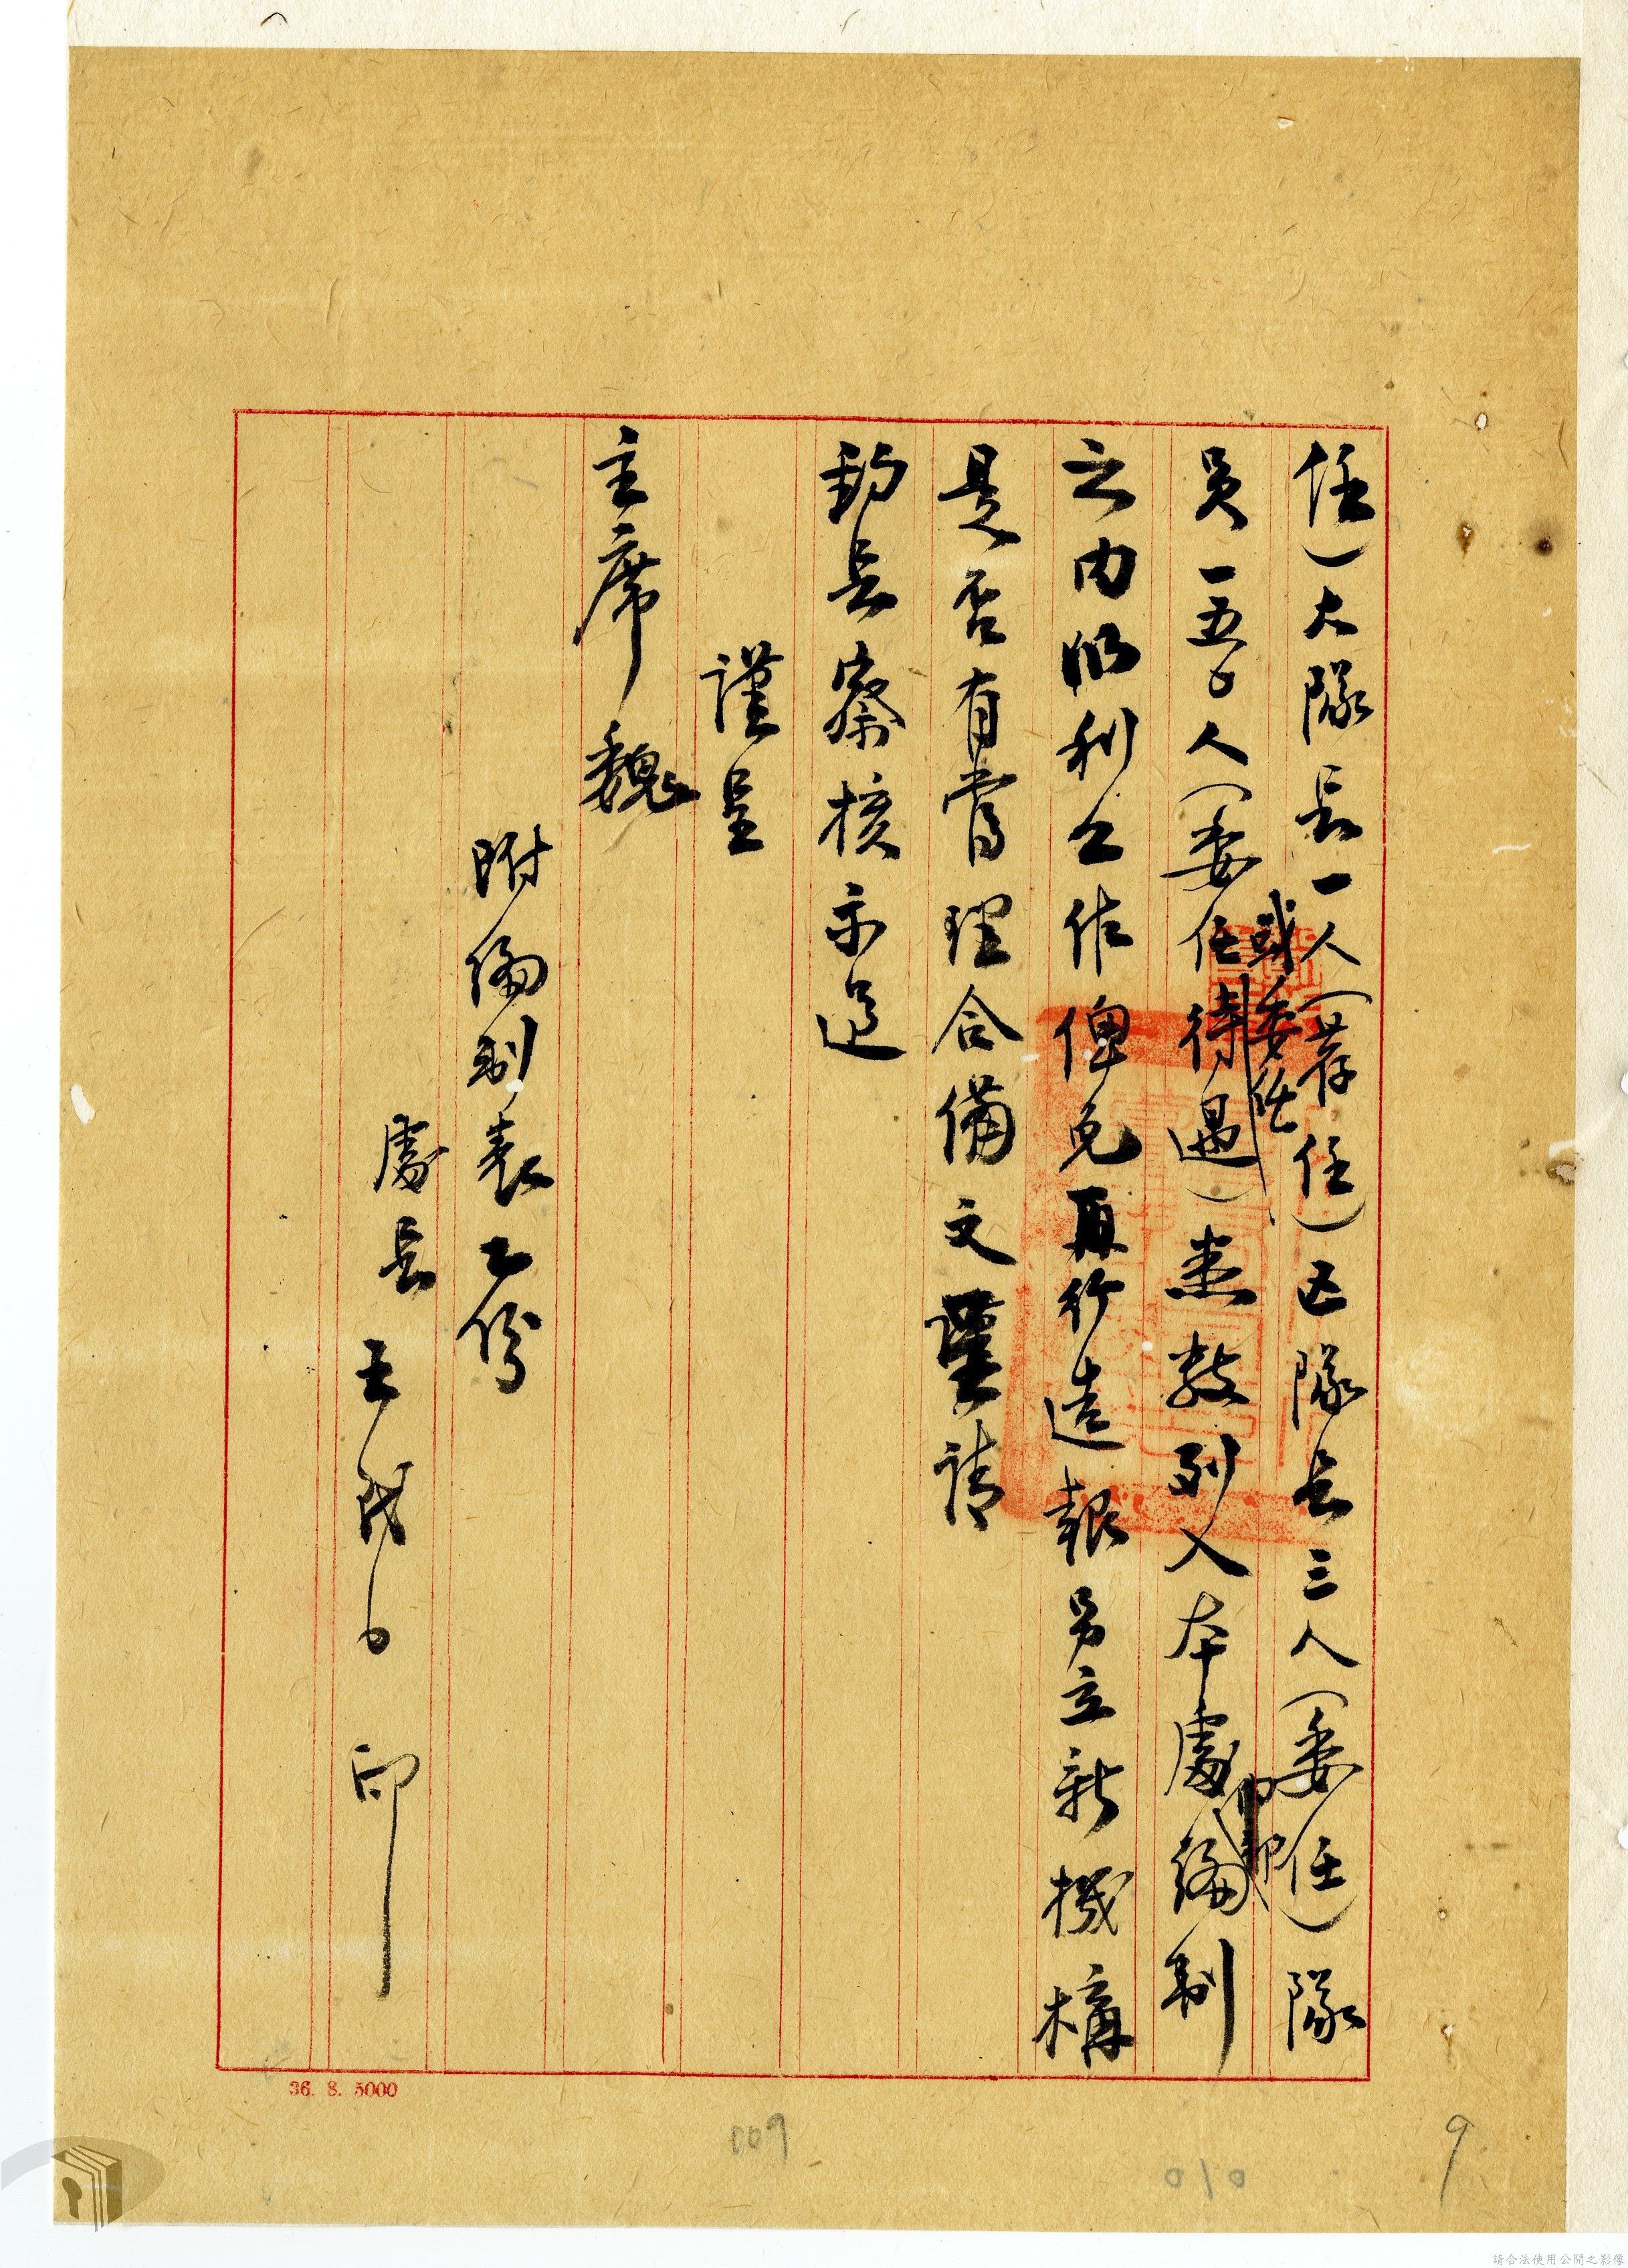 任）大隊長一人（荐任）区隊長三人（委任）隊
或委任
員一五〇人（委任待遇）悉数列入本處編制
之内以利工作俾免再行造報另立新機構
是否有當理合備文謹請
鈞長察核示遵
謹呈
主席魏
附編制表乙份
處長王民 印
36. 8. 5000
009
010
9
請合法使用公開之影像